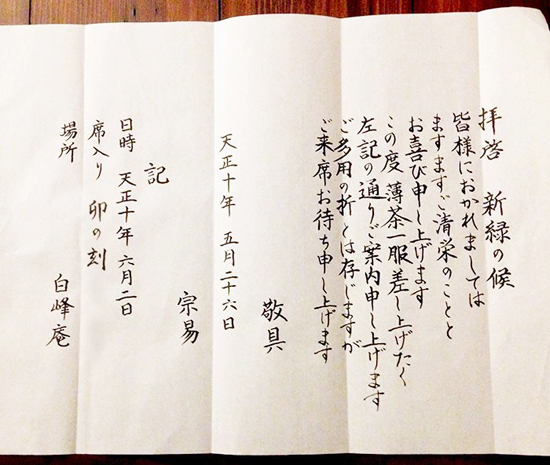 拝啓 新緑の候
皆様におかれましては
ますますご清栄のことと
お喜び申し上げます
この度 薄茶一服差し上げたく
左記の通りご案内申し上げます
ご多用の折とは存じますが
ご来席お待ち申し上げます
敬具
天正十年 五月二十六日
宗易
記
日時 天正十年 六月二日
席入り 卯の刻
場所 白峰庵